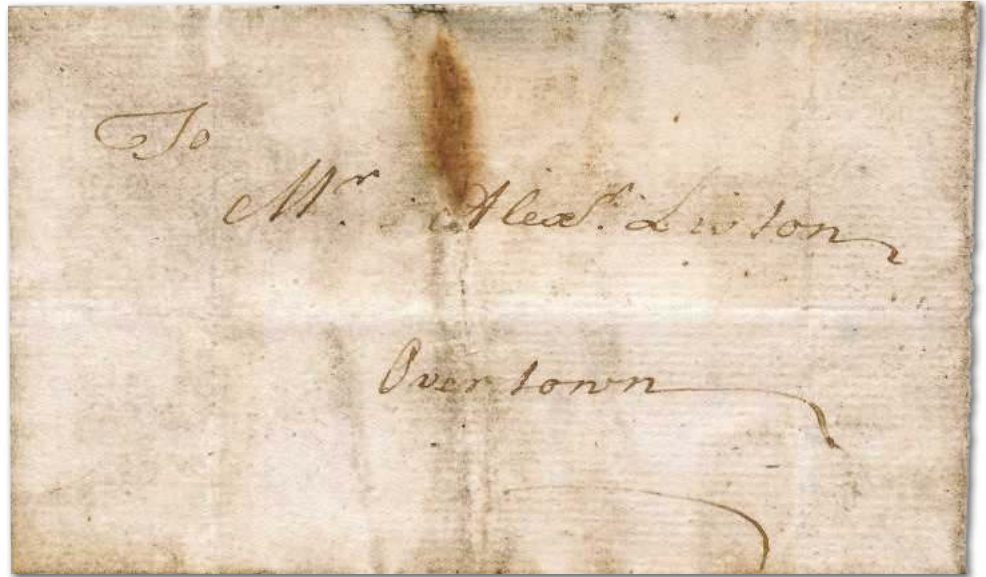 To
Mr. Alexr. Liston
Overtown